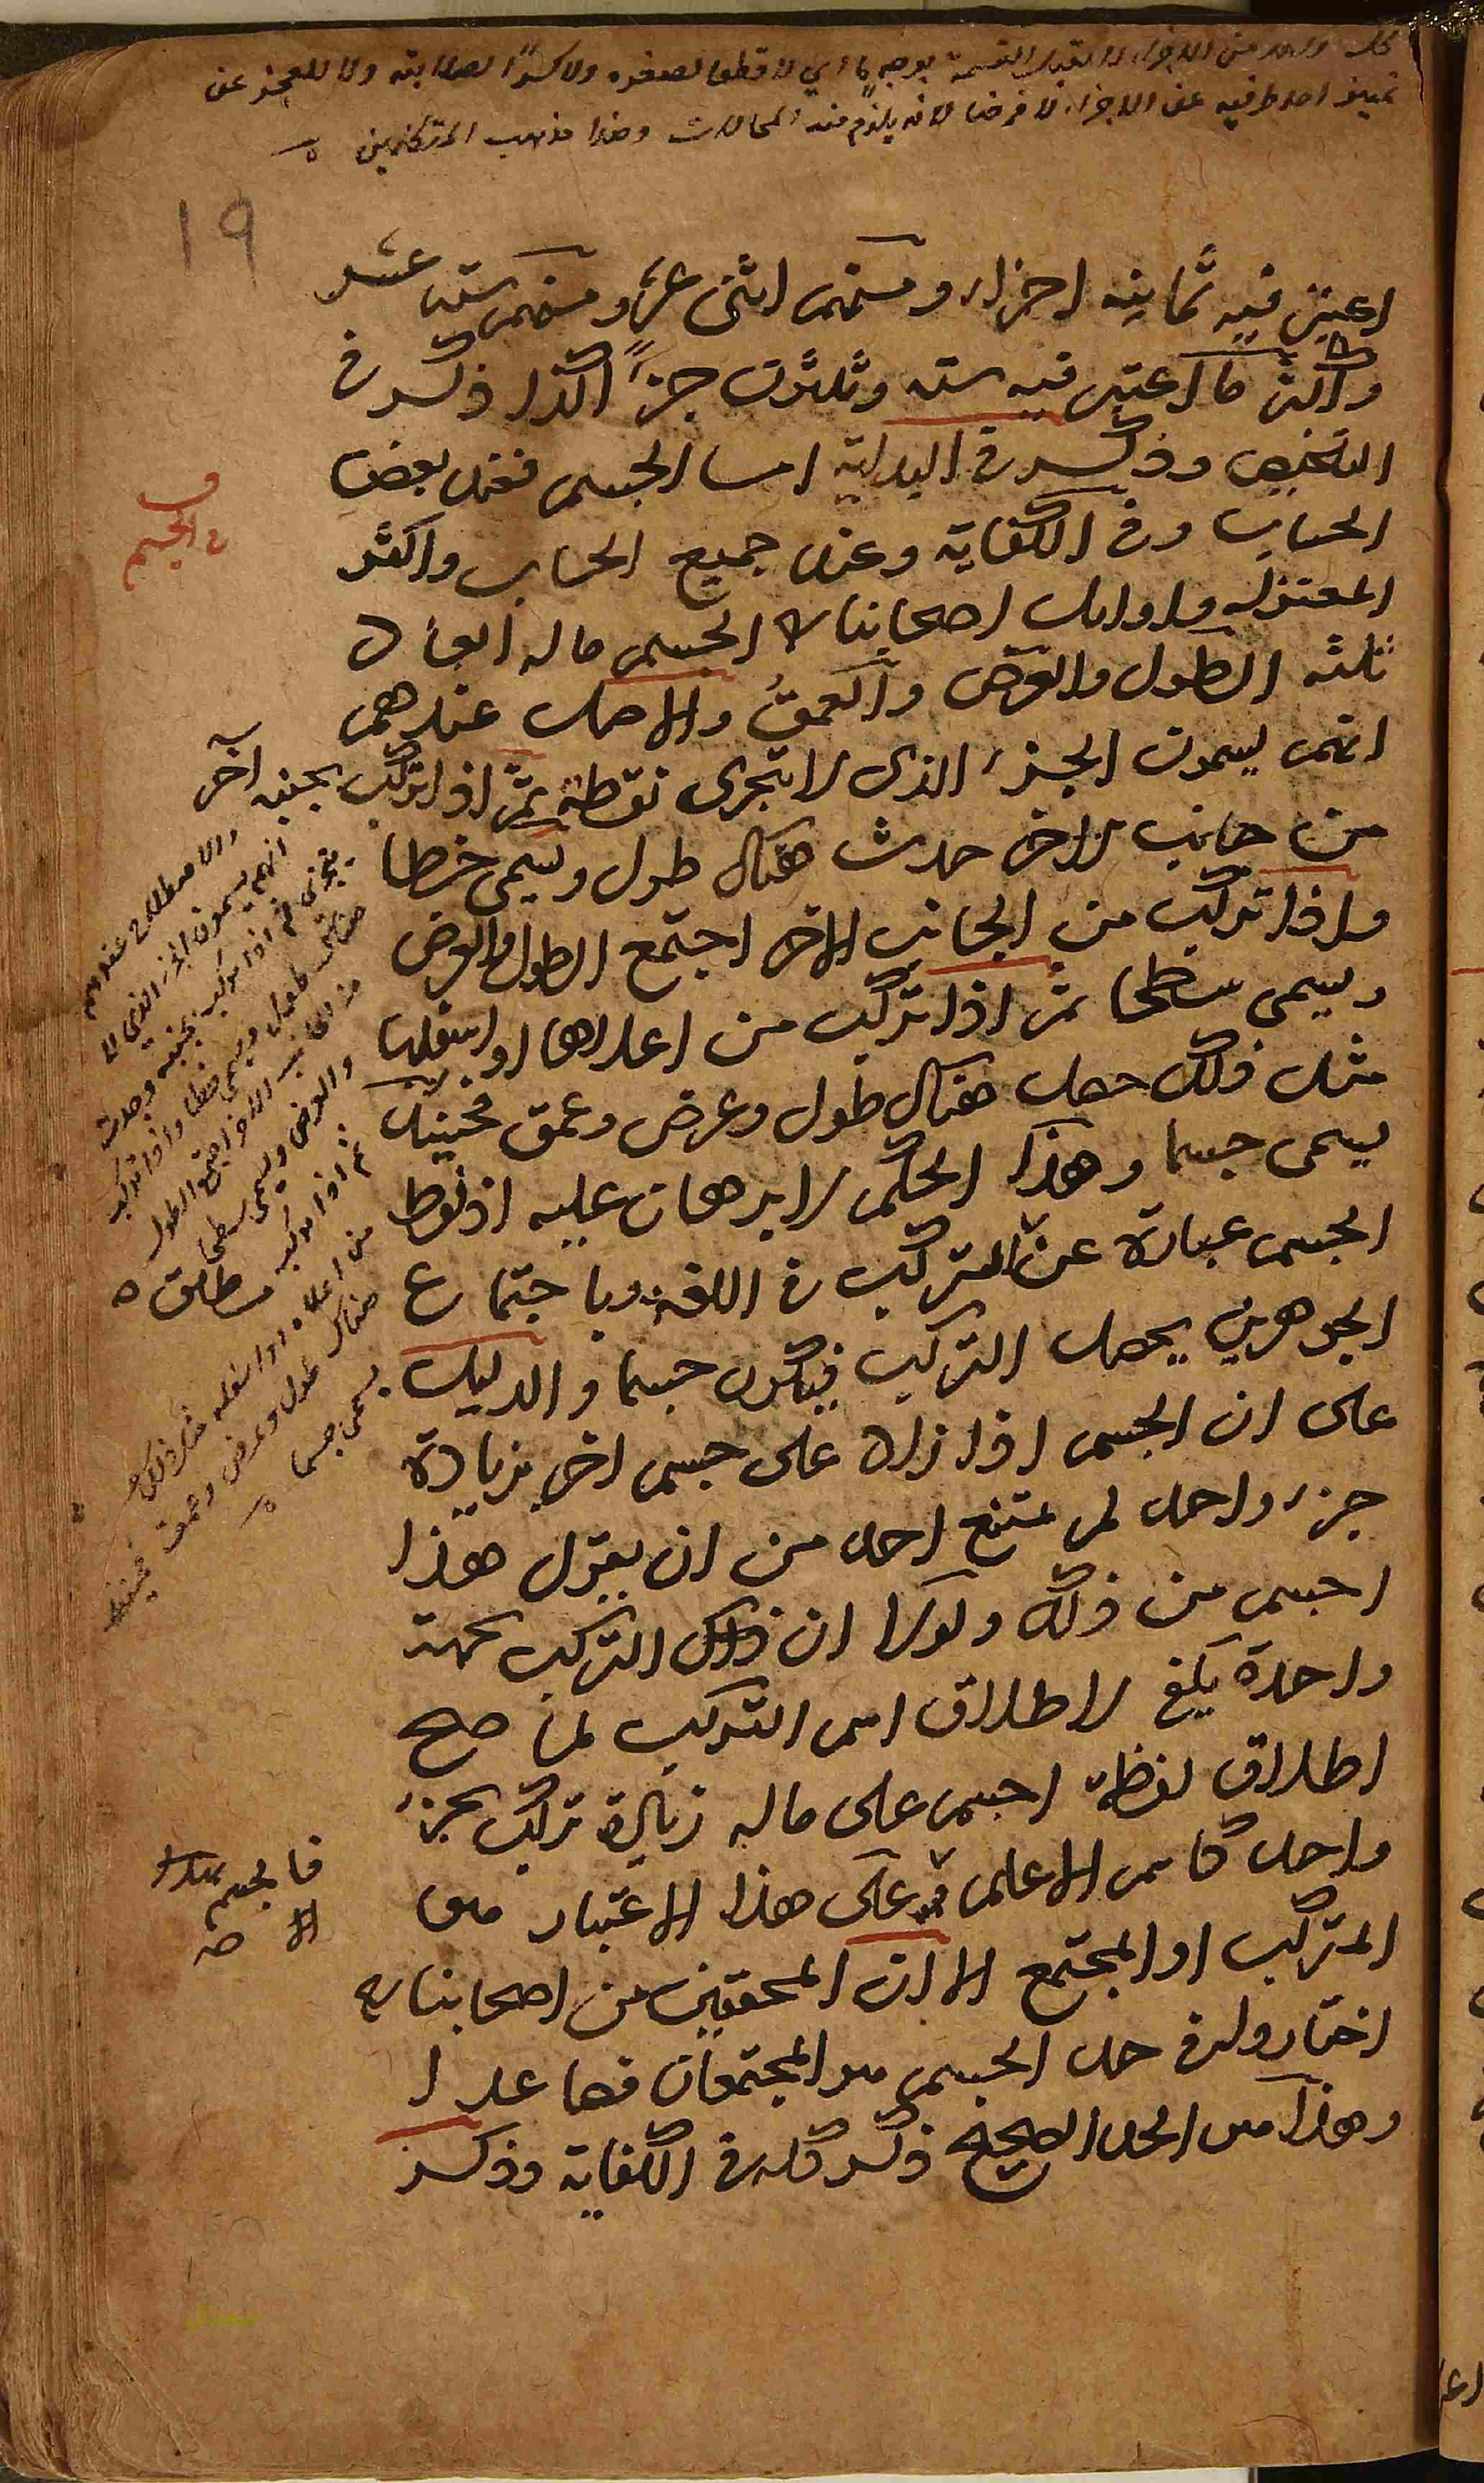 كل واحد من الاجزاء لا تقبل القسمة بوجه ما اي لا قطعا لصغره ولا كسرا لصلابته ولا للعجز عن
تمييز احد طرفيه عن الاجزاء لا فرضا لانه يلزم منه المحالات وهذا مذهب المتكلمين
١٩
اعتبر فيه ثمانية اجزاء ومنهم اثنى عشر ومنهم ستة عشر
واكثر ما اعتبر فيه ستة وثلثون جزءًا كذا ذكر في
التلخيص وذكر في البداية اما الجسم فعند بعض
الحساب وفي الكفاية وعند جميع الحساب واكثر
المعتزلة واوايل اصحابنا الجسم ما له ابعاد
ثلثة الطول والعرض والعمق والاصل عندهم
انهم يسمون الجزء الذي لا يتجزى نقطة ثم اذا تركب بجنبه آخر
من جانب لاخر حدث هناك طول ويسمى خطا
واذا تركب من الجانب الاخر اجتمع الطول والعرض
ويسمى سطحا ثم اذا تركب من اعلاها او اسفلها
مثل ذلك حصل هناك طول وعرض وعمق فحينئذ
يسمى جسما وهذا الحكم لا برهان عليه اذ لفظ
الجسم عبارة عن المتركب في اللغة وباجتماع
الجوهرين يحصل التركيب فيكون جسما والدليل
على ان الجسم اذا زاد على جسم اخر بزيادة
جزء واحد لم يمتنع احد من ان يقول هذا
اجسم من ذلك ولولا ان ذلك التركب بجهة
واحدة يكفي لاطلاق اسم التركيب لما صح
اطلاق لفظة اجسم على ما له زيادة تركب بجزء
واحد كاسم الاعلم فعلى هذا الاعتبار هو
المتركب او المجتمع الا ان المحققين من اصحابنا
اختاروا في حد الجسم هو المجتمعان فصاعدا
وهذا هو الحد الصحيح ذكر كله في الكفاية وذكر
ف
في الجسم
والاصطلاح عندهم
انهم يسمون الجزء الذي لا
يتجزى ثم اذا تركب بجنبه وحدث
هناك طول ويسمى خطا واذا تركب
من الجانب الاخر اجتمع الطول
والعرض ويسمى سطحا
ثم اذا تركب
من اعلاه او اسفله مثل ذلك
هناك طول وعرض وعمق فحينئذ
يسمى جسما
مطلق
فالجسم